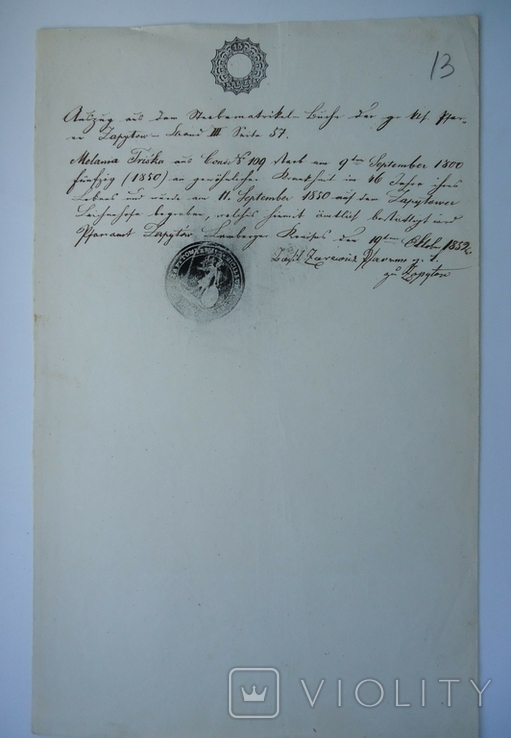 13
Auszug aus dem Sterbematrikel-Buche der gr. kat. Pfar-
re Zapytow - Band III Seite 57.
Melania Triska aus Cons. № 199 starb am 9ten September 1800
fünfzig (1850) an gewöhnlicher Krankheit im 46 Jahre ihres
Lebens und wurde am 11. September 1850 auf dem Zapytower
Leichenhofe begraben, welches hiemit ämtlich bestättigt wird
Pfarramt Zapytów Lemberger Kreises den 19ten 1852
Pfarrer g. k.
zu Zapytow
VIOLITY